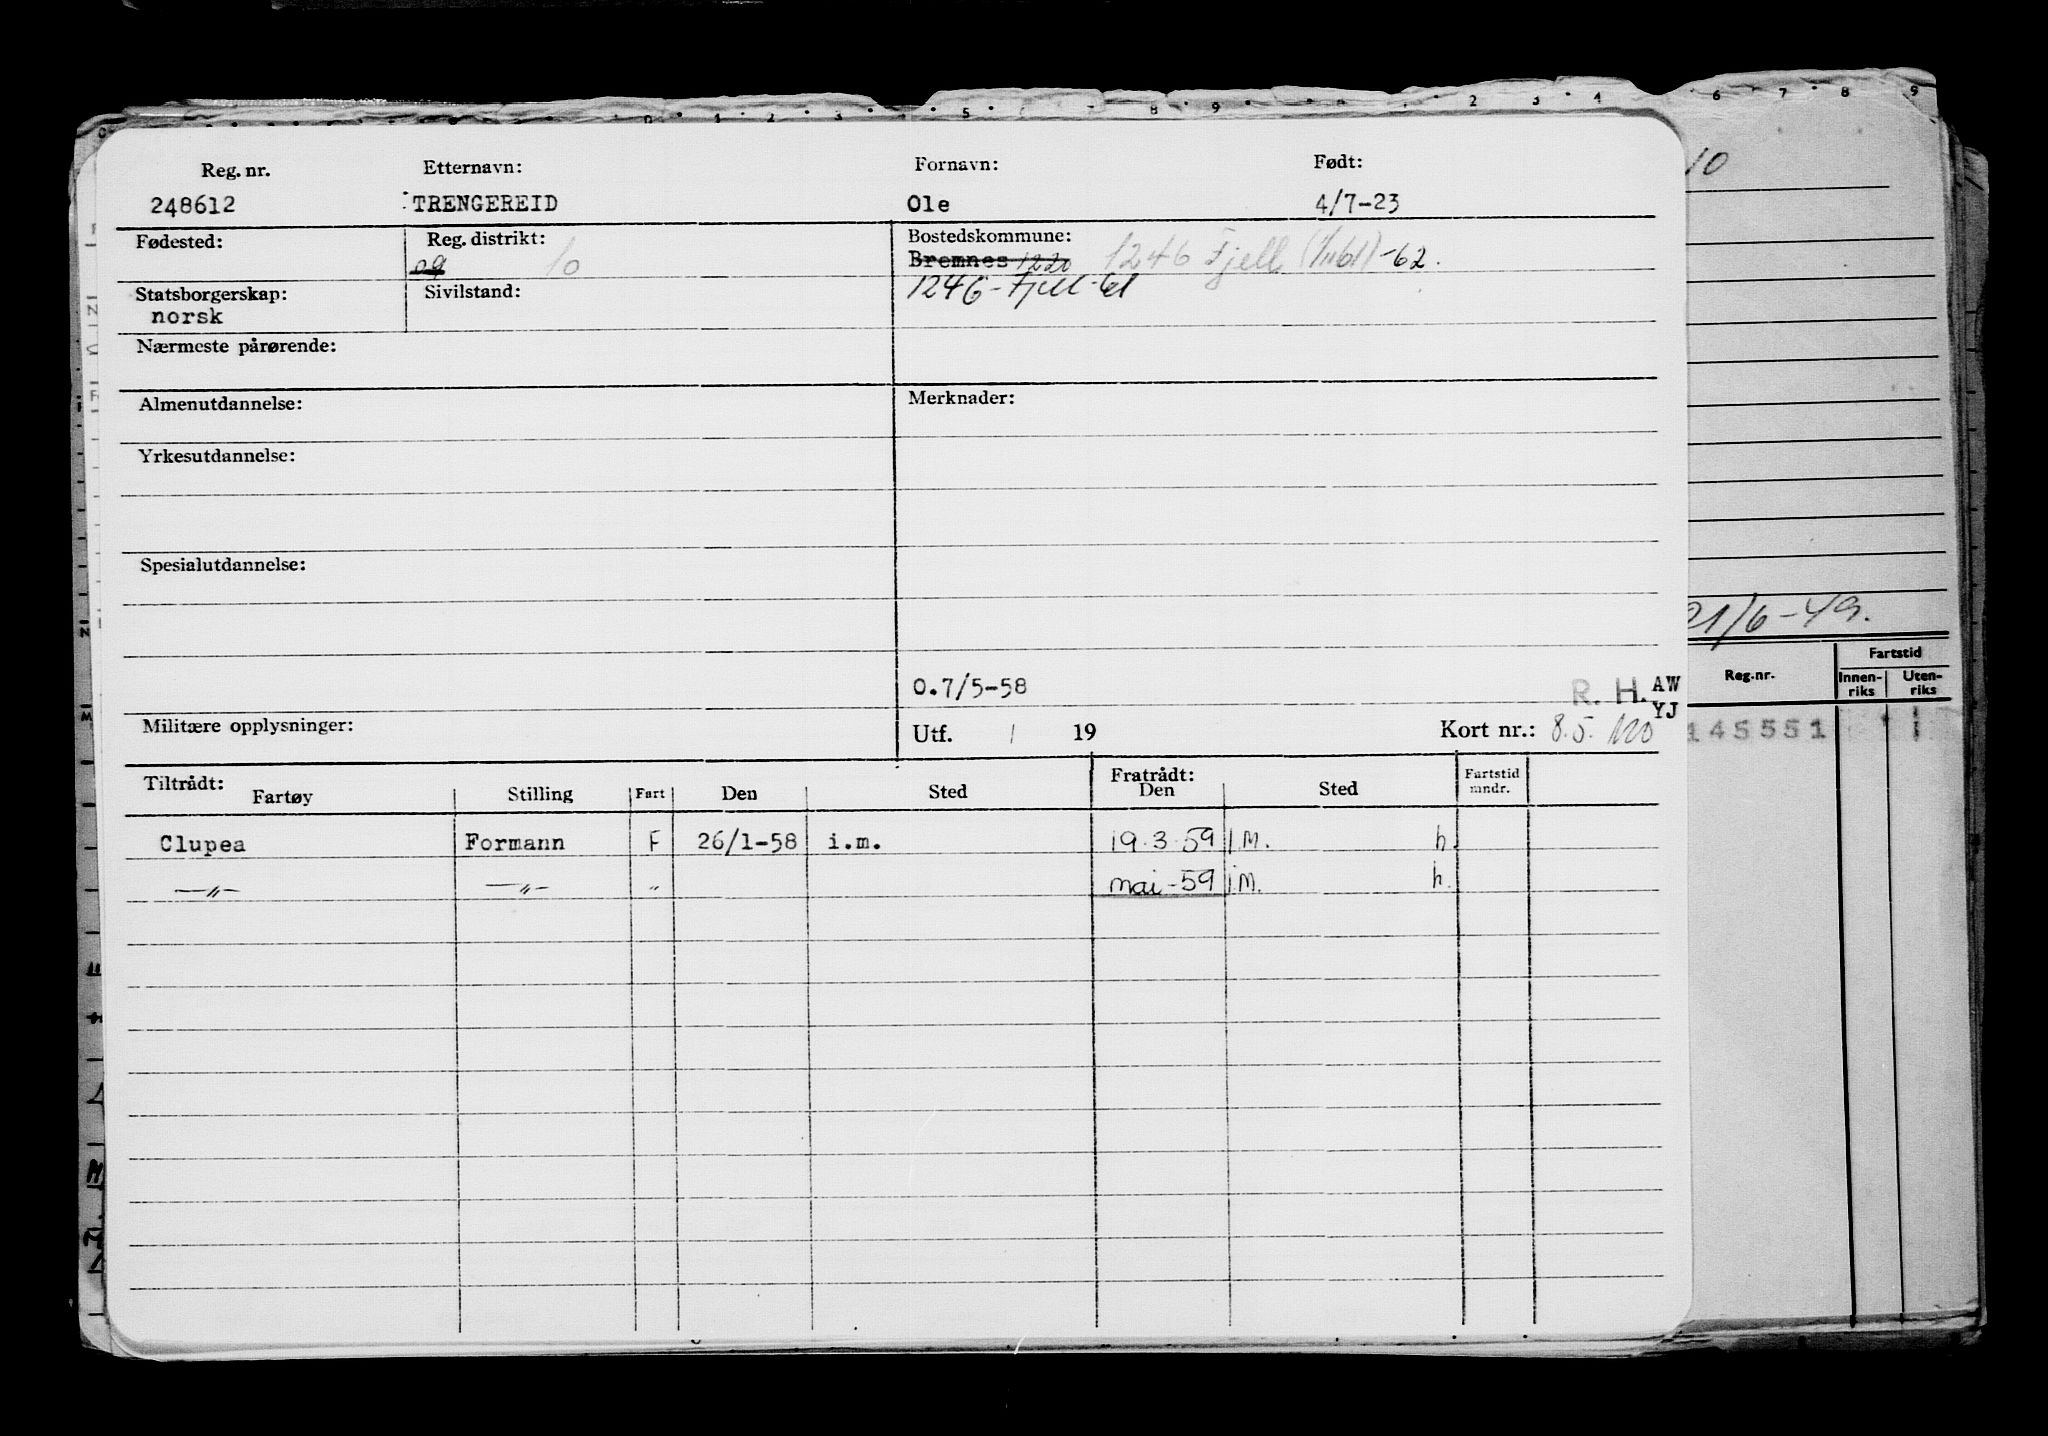 Reg. nr. Etternavn: Fornavn: Født:
248612 TRENGEREID Ole 4/7-23
Fødested: Reg. distrikt: Bostedskommune:
09 10 Bremnes 1220 1246 Fjell (1/1-61)-62.
Statsborgerskap: Sivilstand: 1246-Fjell-61
norsk
Nærmeste pårørende:
Almenutdannelse: Merknader:
Yrkesutdannelse:
Spesialutdannelse:
O.7/5-58 R. H. AW
YJ
Militære opplysninger: Utf. / 19 Kort nr.: 8.5.
Tiltrådt: Fratrådt:
Fartøy Stilling Fart Den Sted Den Sted Fartstid mndr.
Clupea Formann F 26/1-58 i.m. 19.3.59 I.M. h.
—〃— —〃— 〃 mai-59 I.M. h.
10
21/6-49.
Reg.nr. Fartstid
Innen-riks Uten-riks
145551